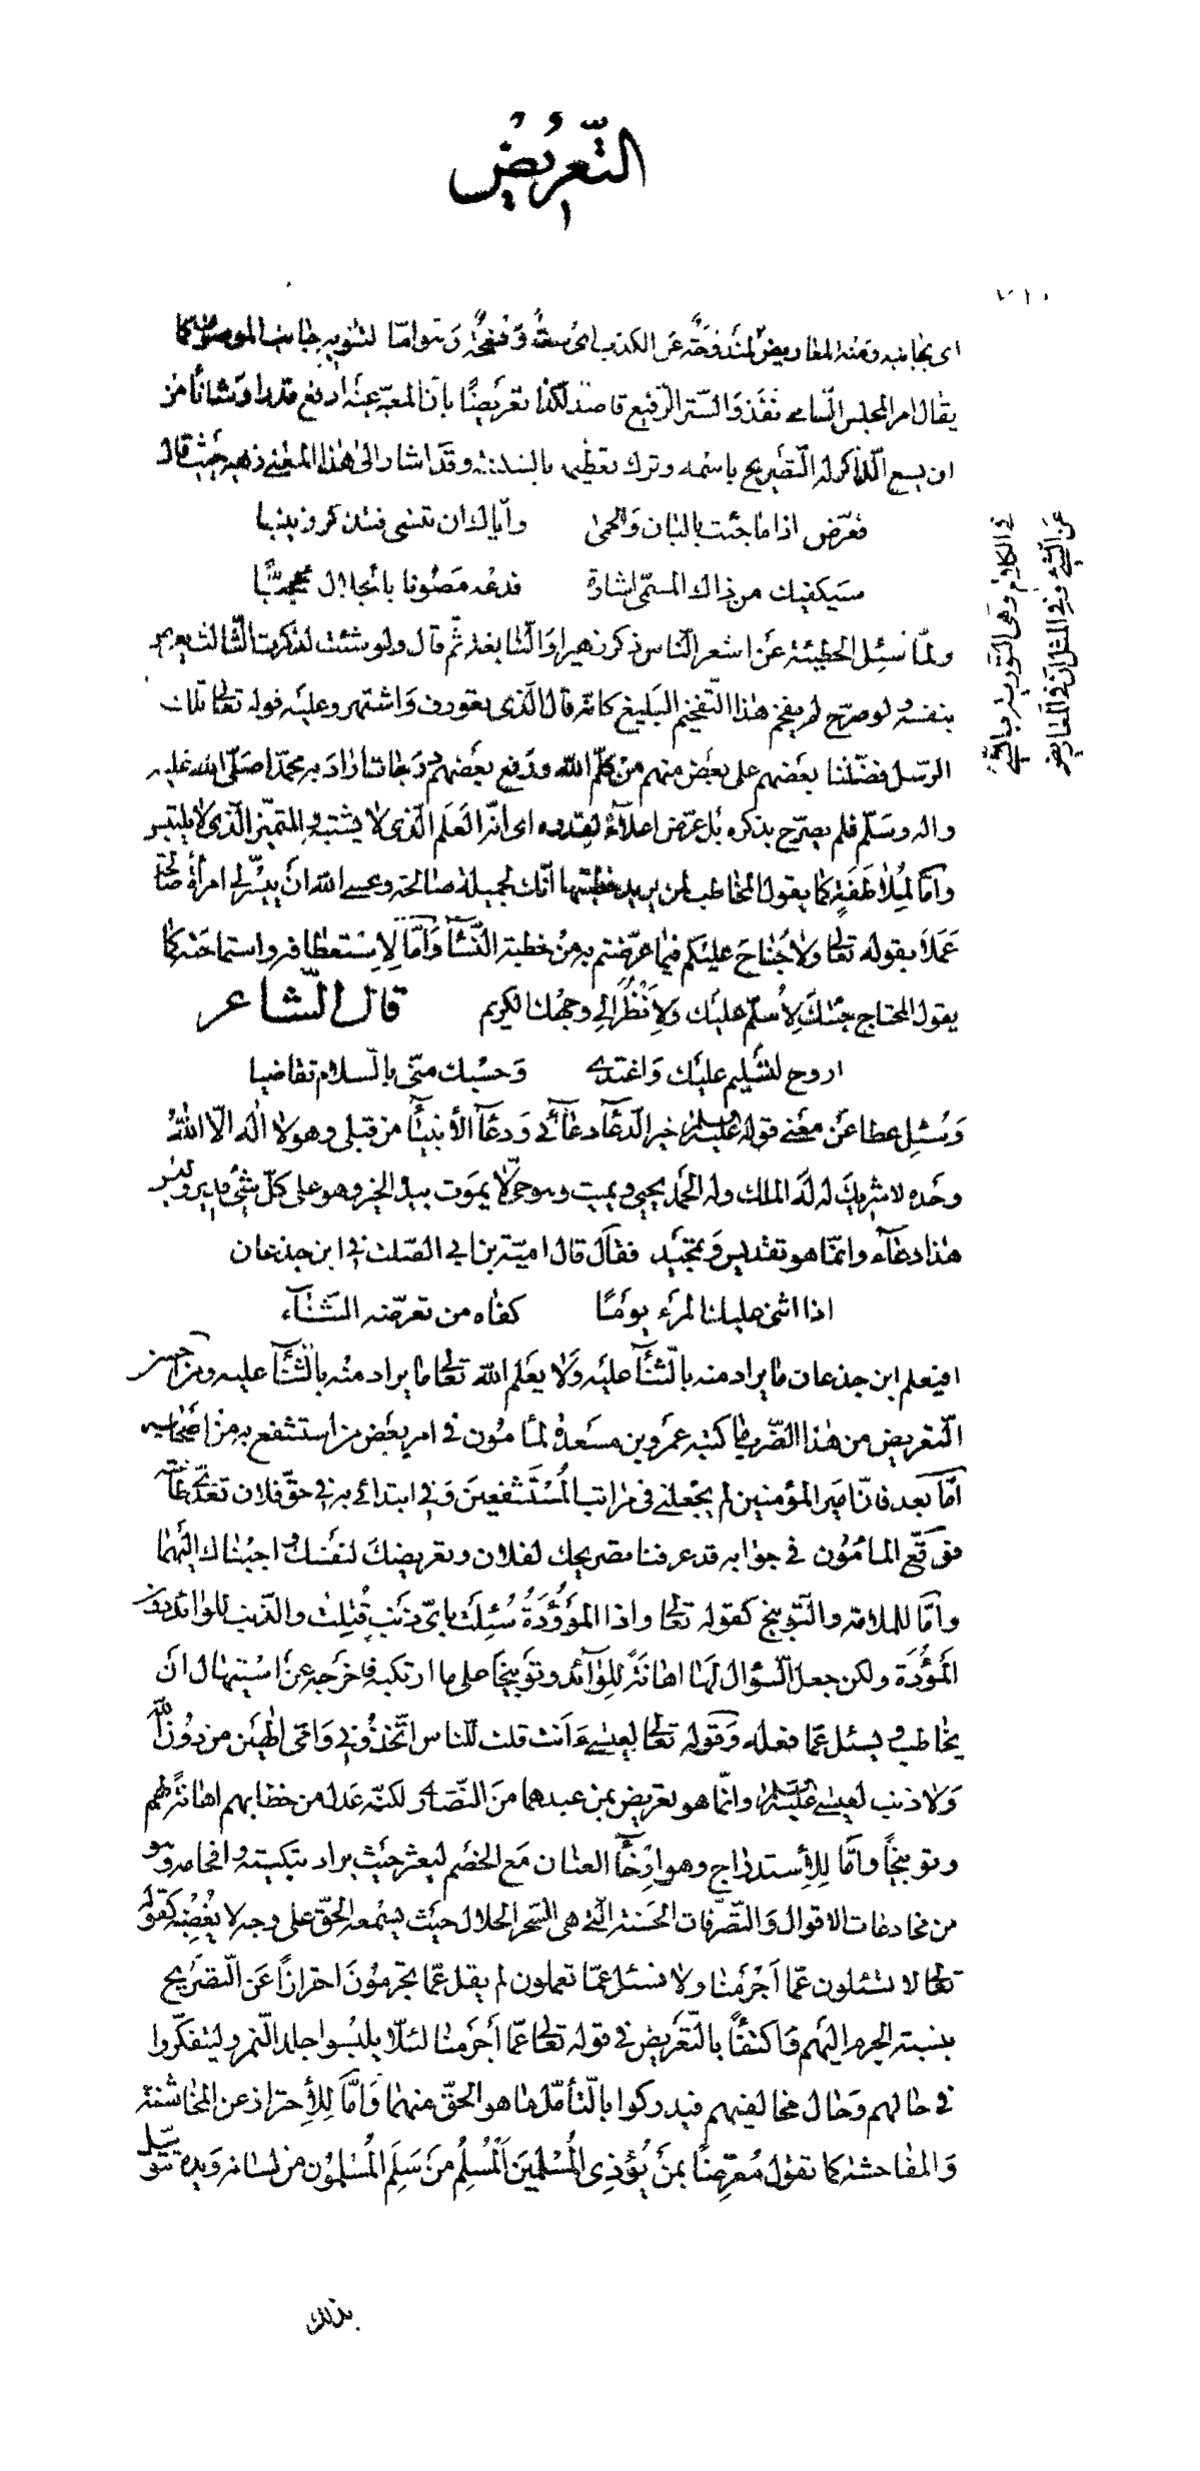 التّعريض
٧١٠
اى بجانبه ومنه المعاريض لمندوحة عن الكذب اى سعة وفسحة وهو امّا لتنويه جانب الموصوف كما
يقال امر المجلس السّامى نفذ والستر الرّفيع قاصد لكذا تعريضًا بانّ المعبّر عنه ارفع قدرا وشانًا من
ان يسع الذّاكر له التّصريح باسمه وترك تعظيمه بالسّدنة وقد اشار الى هذا المعنى زهير حيث قال
فعرّض اذا ما جئت بالبان والحمى وايّاك ان تنسى فتذكر زينبا
سيكفيك من ذاك المسمّى اشارة فدعه مصونا بالجلال محجّبًا
ولمّا سئل الحطيئة عن اشعر النّاس ذكر زهيرا والنّابغة ثمّ قال ولو شئت لذكرت الثّالث يعنى
بنفسه ولو صرّح لم يفخم هذا التّفخيم البليغ كانّه قال الّذى تعورف واشتهر وعليه قوله تعالى تلك
الرّسل فضّلنا بعضهم على بعض منهم من كلّم اللّه ورفع بعضهم درجات اراد به محمّدا صلّى اللّه عليه
واله وسلّم فلم يصرّح بذكره بل عرّض اعلاءً لقدره اى انّه العلم الّذى لا يشتبه والمتميّز الّذى لا يلتبس
وامّا لملاطفة كما يقول الخاطب لمن يريد خطبتها انّك لجميلة صالحة وعسى اللّه ان ييسّر لى امرأة صالحة
عملا بقوله تعالى ولا جناح عليكم فيما عرّضتم به من خطبة النّسآء وامّا لاستعطافه واستماحته كما
يقول المحتاج جئتك لاسلّم عليك ولانظر الى وجهك الكريم قال الشّاعر
اروح لتسليم عليك واغتدى وحسبك منّى بالسّلام تقاضيا
وسئل عطا عن معنى قوله عليه السلام خير الدّعآء دعآئى ودعآء الأنبيآء من قبلى وهو لا اله الّا اللّه
وحده لا شريك له له الملك وله الحمد يحيى ويميت وهو حىّ لا يموت بيده الخير وهو على كلّ شئ قدير وليس
هذا دعآء وانّما هو تقديس وتمجيد فقال قال اميّة بن ابى الصّلت فى ابن جذعان
اذا اثنى عليك المرء يومًا كفاه من تعرّضه الثّنآء
افيعلم ابن جذعان ما يراد منه بالثّنآء عليه ولا يعلم اللّه تعالى ما يراد منه بالثّنآء عليه ومن احسن
التّعريض من هذا الضّرب ما كتبه عمرو بن مسعدة لمأمون فى امر بعض من استشفع به من اصحابه
امّا بعد فانّ امير المؤمنين لم يجعلنى فى مراتب المستشفعين وفى ابتدائى به فى حقّ فلان تعدّى طاعته
فوقّع المأمون فى جوابه قد عرفنا تصريحك لفلان وتعريضك لنفسك واجبناك اليهما
وامّا للملامة والتّوبيخ كقوله تعالى واذا المَوْؤُدَةُ سُئِلَت باىّ ذنب قُتِلت والذّنب للوائد دون
المَوْؤُدَة ولكن جعل السّؤال لها اهانةً للوآئد وتوبيخًا على ما ارتكبه فاخرجه عن استيهال ان
يخاطب ويسئل عمّا فعله وقوله تعالى لعيسى ءانت قلت للنّاس اتّخذونى وامّى الهين من دون اللّه
ولا ذنب لعيسى عليه السلام وانّما هو تعريض بمن عبدهما من النّصارى ولكنّه عدل من خطابهم اهانةً لهم
وتوبيخًا وامّا للأستدراج وهو ارخآء العنان مع الخصم ليعثر حيث يراد تبكيته وافحامه وهو
من مخادعات الاقوال والتّصرّفات الحسنة الّتى هى السّحر الحلال حيث يسمعه الحقّ على وجه لا يغضبه كقوله
تعالى لا تسئلون عمّا أجرمنا ولا نسئل عمّا تعملون لم يقل عمّا تجرمون احترازًا عن التّصريح
بنسبة الجرم اليهم واكتفآءً بالتّعريض فى قوله تعالى عمّا أجرمنا لئلّا يلبسوا جلد النّمر وليتفكّروا
فى حالهم وحال مخالفيهم فيدركوا بالتّأمّل ما هو الحقّ منهما وامّا للأحتراز عن المخاشنة
والمفاحشة كما تقول مُعرّضًا بمن يُؤذِى المُسلمينَ المُسلِمُ من سَلِمَ المُسلمون من لسانه ويده
بذلك
فى الكلام وهى التورية بالشّئ
عن الشّئ وفى المثل انّ فى المعاريض